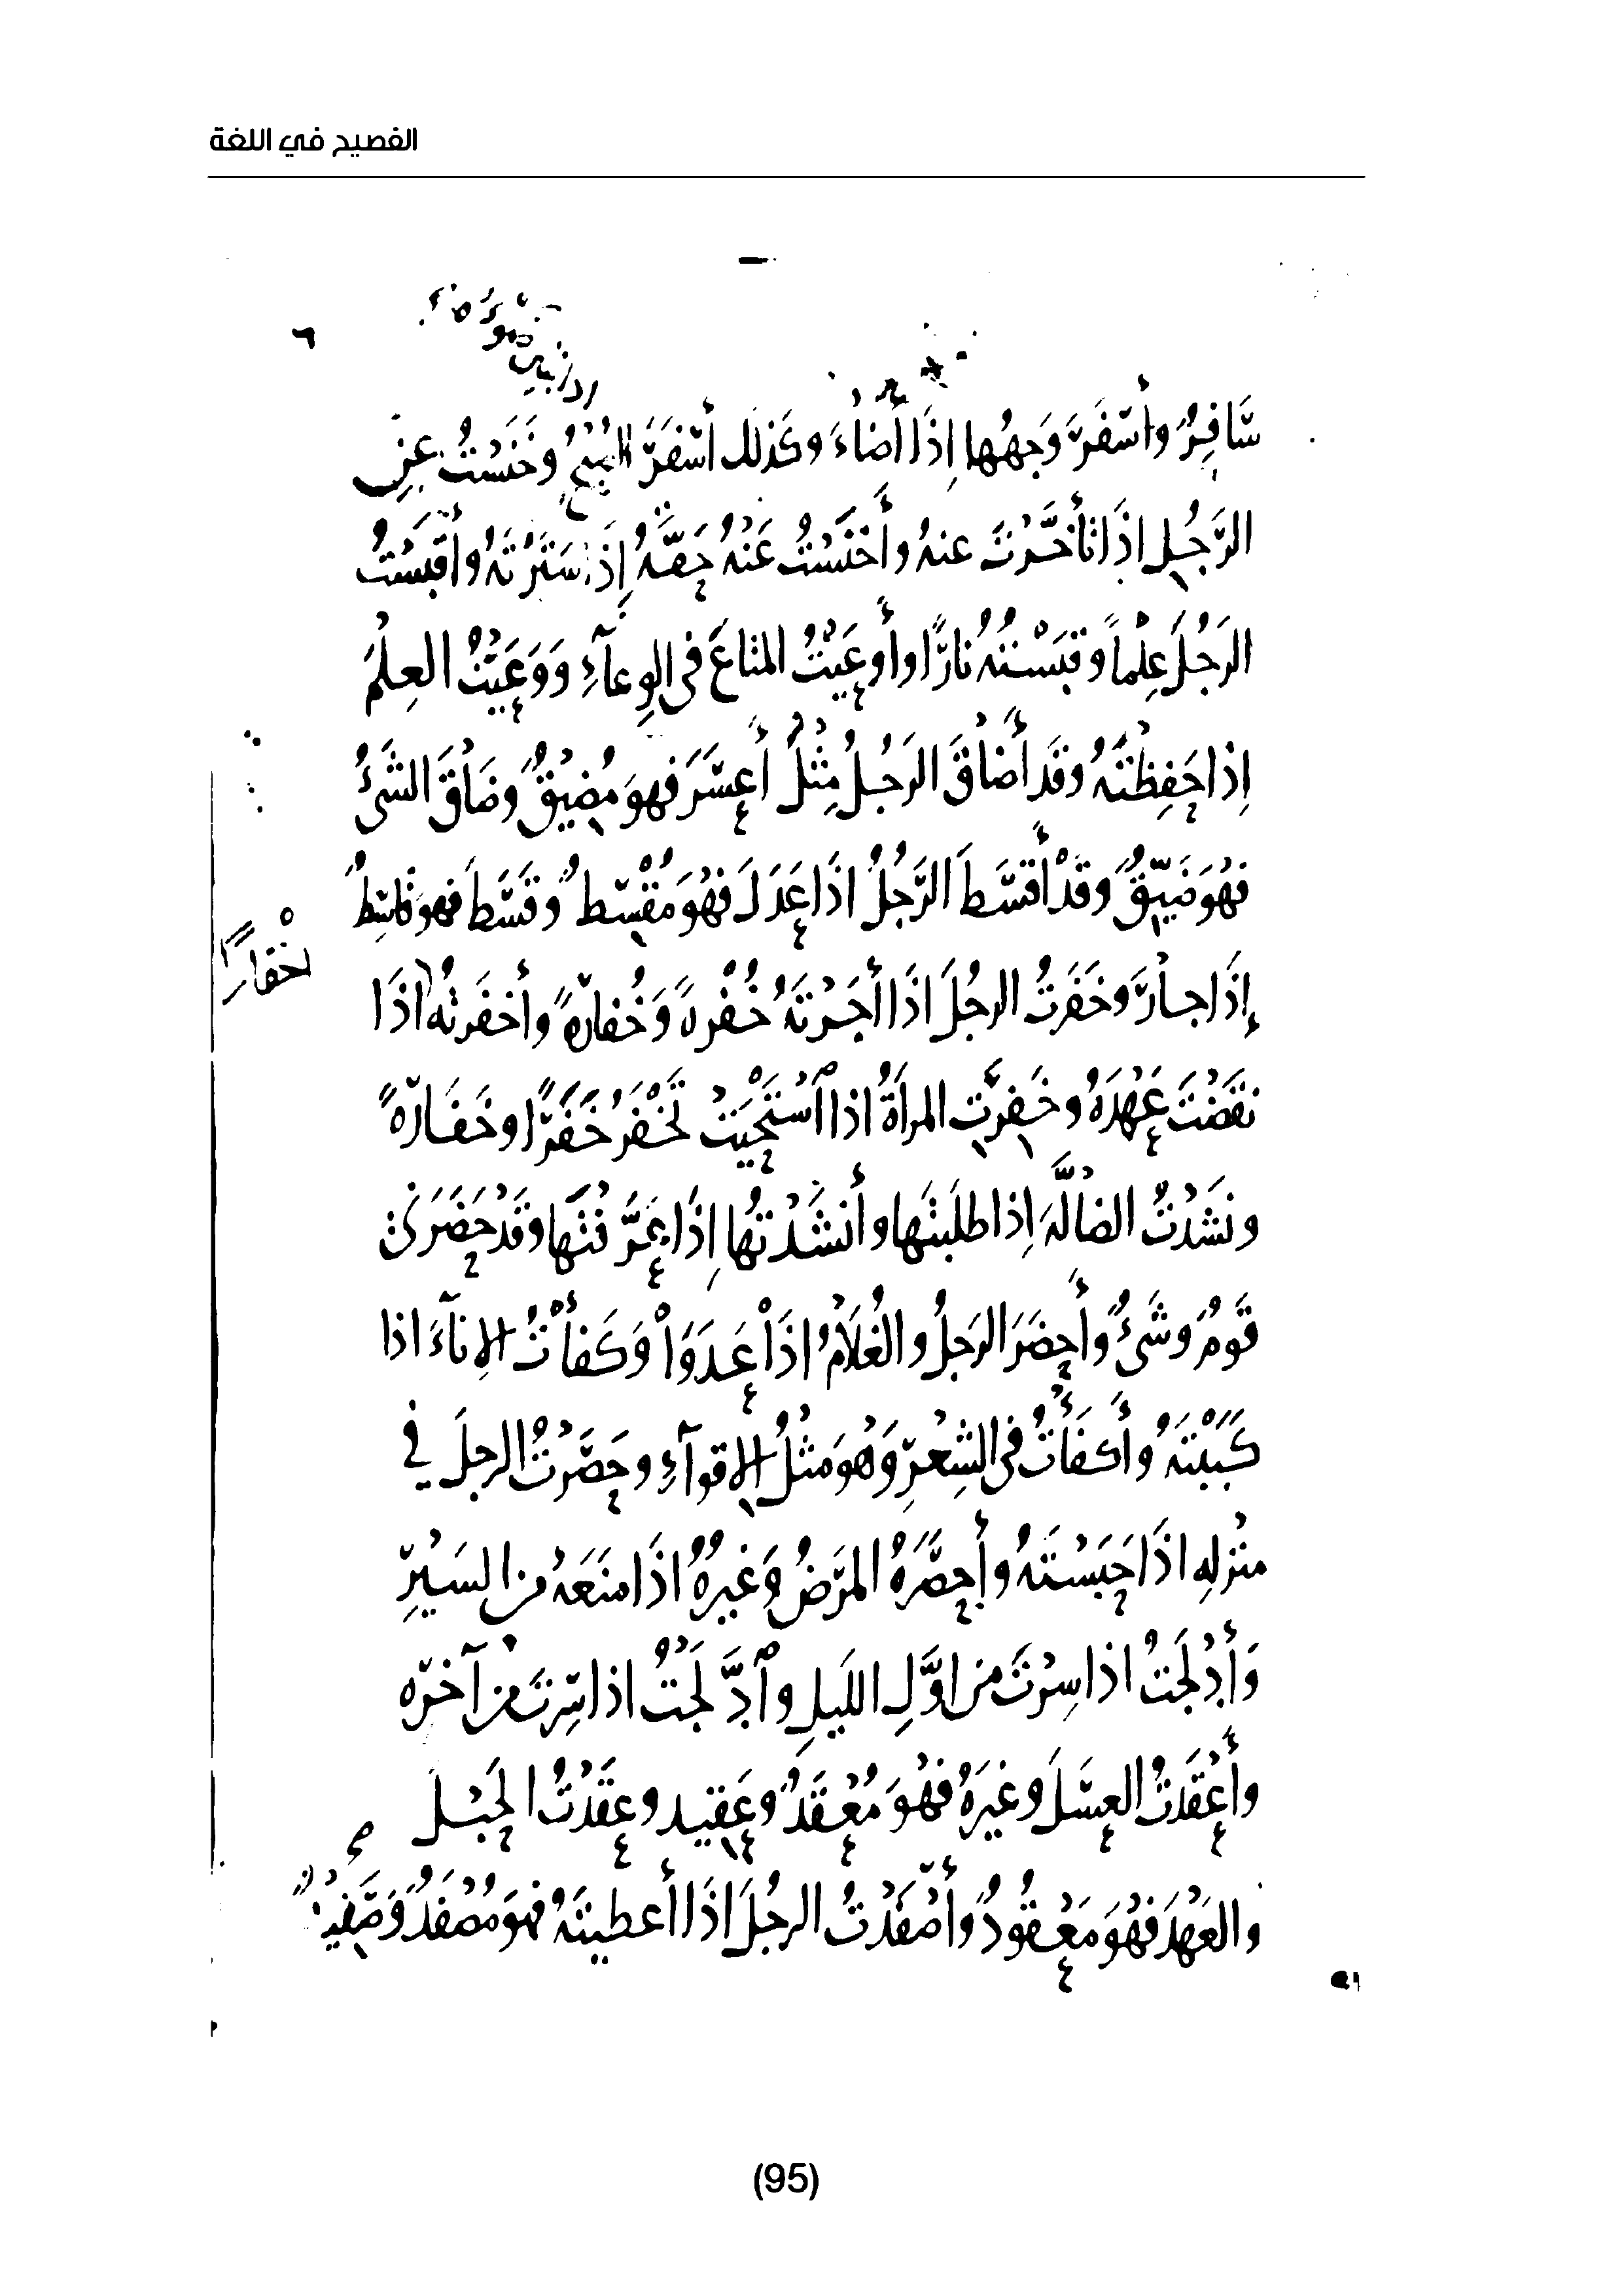 الفصيح في اللغة
٦
سَافِرٌ وأَسْفَرَ وَجهُها إِذَا أَضاءَ وكَذلك أَسْفَرَ الصُبْحُ وخَنَسْتُ عن
الرَّجُلِ اذَا تأَخَّرْتَ عنهُ وأَخْنَسْتُ عَنْهُ حَقَّهُ إِذَا سَتَرْتَهُ وأَقبَسْتُ
الرَجُلَ عِلْماً وقبَسْتُهُ نارًا وأَوعَيْتُ المتاعَ في الوِعآءِ وَوَعَيْتُ العِلْمَ
اِذا حَفِظْتَهُ وقَد أَضاقَ الرَجُلُ مِثْلُ أَعسَرَ فهوَ مُضيْقٌ وضَاقَ الشَىْءُ
فهُوَ ضَيّقٌ وقَدْ أَقسَطَ الرَّجُلُ اذَا عَدَلَ فهُوَ مُقْسِطٌ وقَسَطَ فهوَ قَاسِطٌ
إِذَا جارَ وخَفَرتُ الرجُلَ اذَا أَجَرْتَهُ خُفْرةً وَخُفارةً وأَخفَرتُه اذَا
اخْفارًا
نقَضْتَ عَهْدَهُ وخَفِرَتِ المرأَةُ اذا ٱسْتَحْيَتْ تَخْفَرُ خَفَرًا وخَفَارَةً
ونَشَدْتُ الضالَّةَ إِذا طلَبتَها وأَنشَدْتُها إِذَا عَرَّفْتَها وقَد حَضَرَني
قَومٌ وشَىْءٌ وأَحضَرَ الرَجلُ والغُلَامُ اذَا عَدَوَا وَكَفأْتُ الإِناءَ اذا
كَبَبْتَهُ وأَكفَأْتُ في الشِعْرِ وَهُوَ مثْلُ الإِقوآءِ وحَصَرْتُ الرجلَ في
منْزلِهِ اذَا حَبَسْتَهُ وأَحصَرَهُ المَرَضُ وَغيرُهُ اذَا منَعَهُ من السَيْرِ
وَأَدْلَجتُ اذا سِرْتَ من اوَّلِ الليلِ وٱدَّلَجْتُ اذا سِرتَ من آخرِه
وأَعْقَدتُ العسَلَ وغيرَهُ فهُوَ مُعْقَدٌ وعَقيد وعقَدْتُ الحَبْلَ
والعَهْدَ فهُوَ مَعْقودٌ وأَصْفَدْتُ الرجُلَ اذَا أَعطيتَهُ فهوَ مُصْفَدٌ وَصَفِيدٌ
(95)